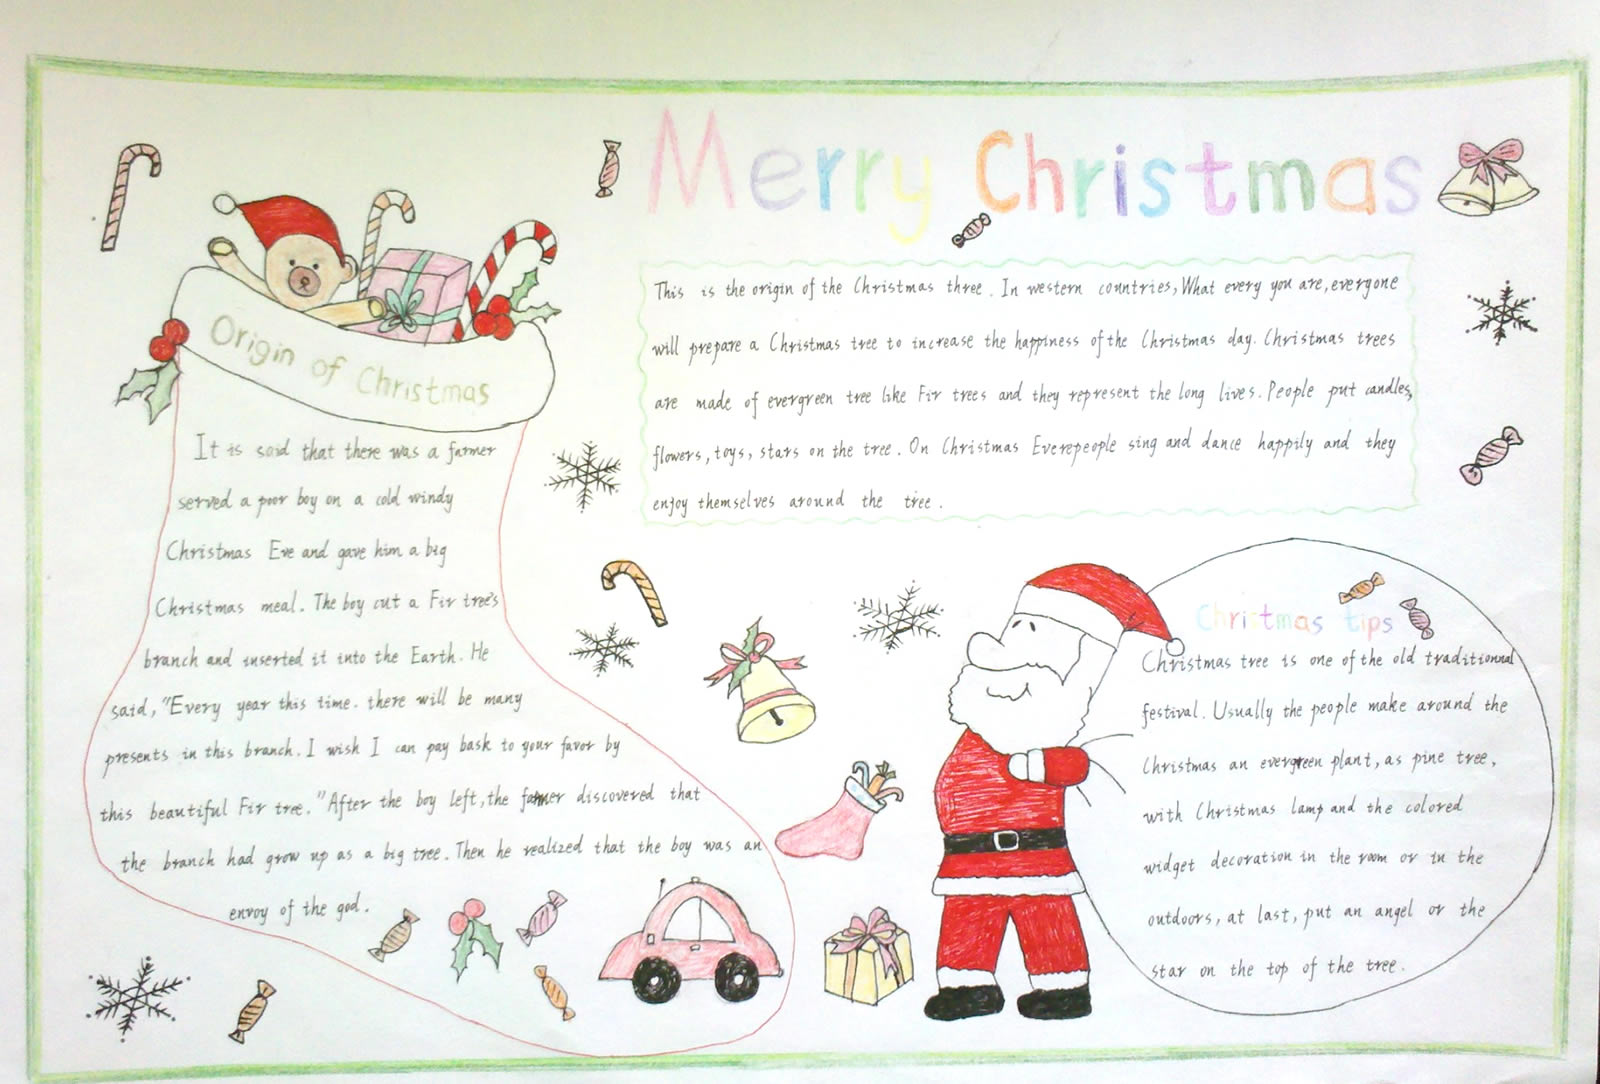 Merry Christmas
Origin of Christmas
It is said that there was a farmer
served a poor boy on a cold windy
Christmas Eve and gave him a big
Christmas meal. The boy cut a Fir tree's
branch and inserted it into the Earth. He
said, "Every year this time. there will be many
presents in this branch. I wish I can pay bask to your favor by
this beautiful Fir tree." After the boy left, the farmer discovered that
the branch had grow up as a big tree. Then he realized that the boy was an
envoy of the god.
This is the origin of the Christmas three. In western countries, What every you are, everyone
will prepare a Christmas tree to increase the happiness of the Christmas day. Christmas trees
are made of evergreen tree like Fir trees and they represent the long lives. People put candles,
flowers, toys, stars on the tree. On Christmas Everepeople sing and dance happily and they
enjoy themselves around the tree.
Christmas tips
Christmas tree is one of the old traditionnal
festival. Usually the people make around the
Christmas an evergreen plant, as pine tree,
with Christmas lamp and the colored
widget decoration in the room or in the
outdoors, at last, put an angel or the
star on the top of the tree.